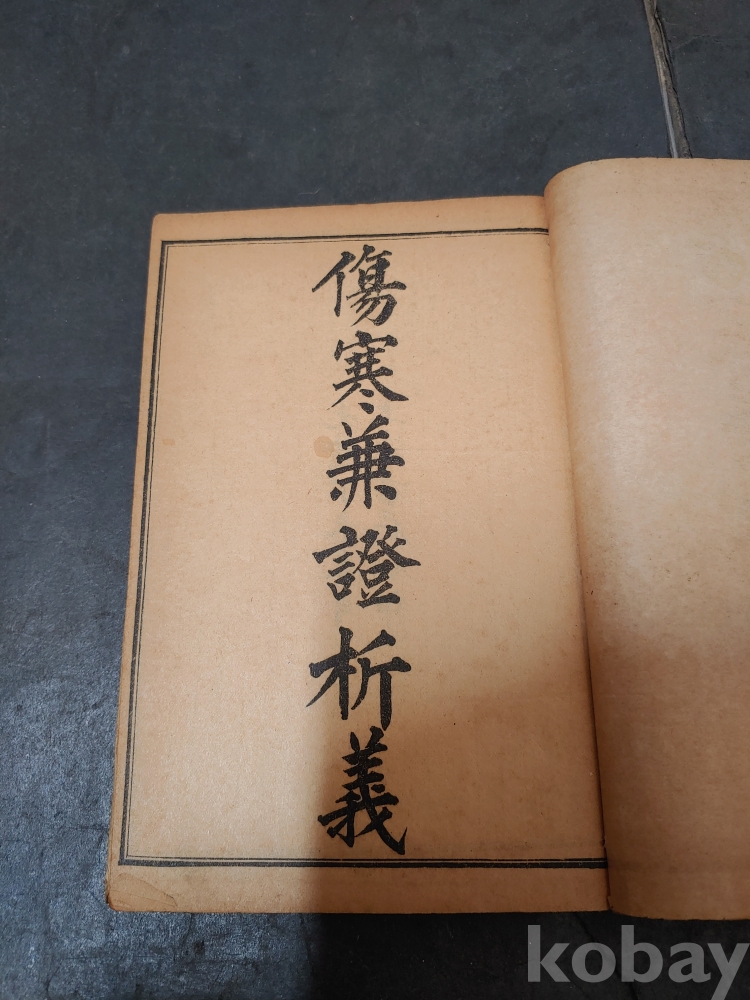 傷寒兼證析義
kobay